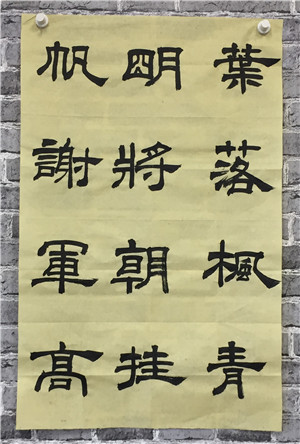 葉落楓青
明將朝挂
帆謝軍高